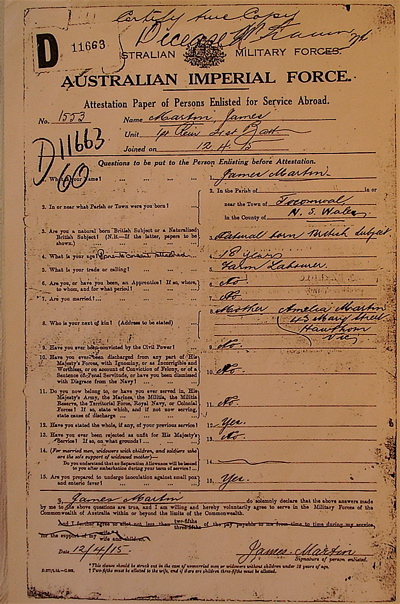 Certify true Copy
D 11663
STRALIAN MILITARY FORCES.
AUSTRALIAN IMPERIAL FORCE.
Attestation Paper of Persons Enlisted for Service Abroad.
No. 1553 Name Martin, James
Unit 1st Rein 21st Batt
Joined on 12.4.15
D11663
60
Questions to be put to the Person Enlisting before Attestation.
1. What is your Name? 1. James Martin.
2. In or near what Parish or Town were you born? 2. In the Parish of in or
near the Town of Tocumwal
in the County of N. S. Wales
3. Are you a natural born British Subject or a Naturalised
British Subject? (N.B.—If the latter, papers to be
shown.) 3. Natural born British Subject
4. What is your age? 4. 18 years
5. What is your trade or calling? 5. Farm Labourer.
6. Are you, or have you been, an Apprentice? If so, where,
to whom, and for what period? 6. No
7. Are you married? 7. No
8. Who is your next of kin? (Address to be stated) 8. Mother Amelia Martin
43 Mary Street
Hawthorn
Vic
9. Have you ever been convicted by the Civil Power? 9. No.
10. Have you ever been discharged from any part of His
Majesty's Forces, with Ignominy, or as Incorrigible and
Worthless, or on account of Conviction of Felony, or of a
Sentence of Penal Servitude, or have you been dismissed
with Disgrace from the Navy? 10. No.
11. Do you now belong to, or have you ever served in, His
Majesty's Army, the Marines, the Militia, the Militia
Reserve, the Territorial Force, Royal Navy, or Colonial
Forces? If so, state which, and if not now serving,
state cause of discharge 11. No.
12. Have you stated the whole, if any, of your previous service? 12. Yes.
13. Have you ever been rejected as unfit for His Majesty's
Service? If so, on what grounds? 13. No.
14. (For married men, widowers with children, and soldiers who
are the sole support of widowed mother)—
Do you understand that no Separation Allowance will be issued
to you after embarkation during your term of service? 14.
15. Are you prepared to undergo inoculation against small pox
and enteric fever? 15. Yes.
I, James Martin do solemnly declare that the above answers made
by me to the above questions are true, and I am willing and hereby voluntarily agree to serve in the Military Forces of the
Commonwealth of Australia within or beyond the limits of the Commonwealth.
And I further agree to allot not less than two-fifths
three-fifths of the pay payable to me from time to time during my service
for the support of my wife
wife and children.
Date 12/4/15. James Martin
Signature of person enlisted.
*This clause should be struck out in the case of unmarried men or widowers without children under 18 years of age.
†Two-fifths must be allotted to the wife, and if there are children three-fifths must be allotted.